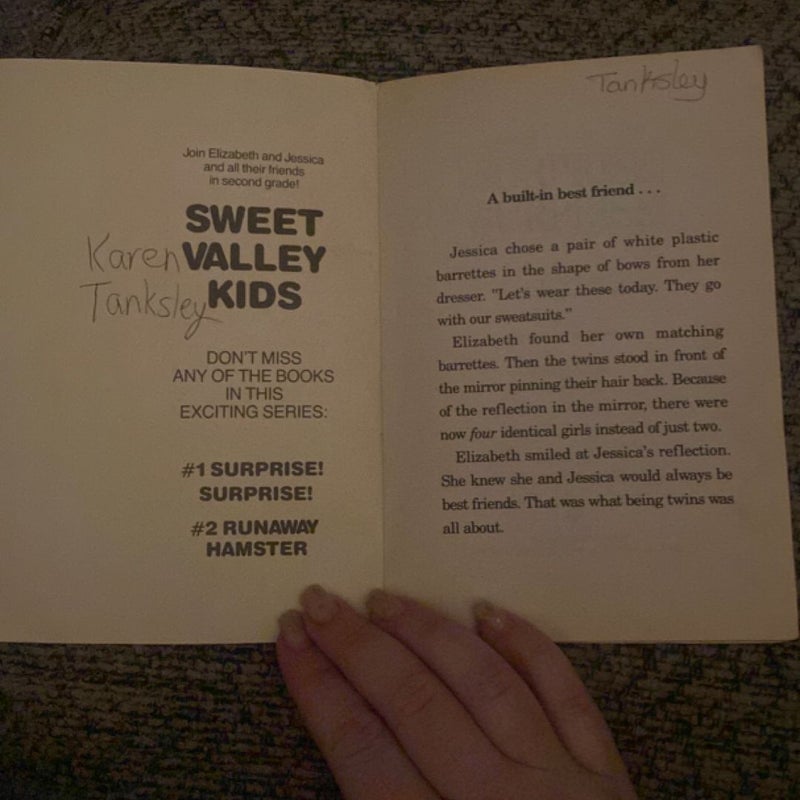 Join Elizabeth and Jessica
and all their friends
in second grade!
SWEET
Karen VALLEY
Tanksley KIDS
DON'T MISS
ANY OF THE BOOKS
IN THIS
EXCITING SERIES:
#1 SURPRISE!
SURPRISE!
#2 RUNAWAY
HAMSTER
Tanksley
A built-in best friend . . .
Jessica chose a pair of white plastic
barrettes in the shape of bows from her
dresser. "Let's wear these today. They go
with our sweatsuits."
Elizabeth found her own matching
barrettes. Then the twins stood in front of
the mirror pinning their hair back. Because
of the reflection in the mirror, there were
now four identical girls instead of just two.
Elizabeth smiled at Jessica's reflection.
She knew she and Jessica would always be
best friends. That was what being twins was
all about.